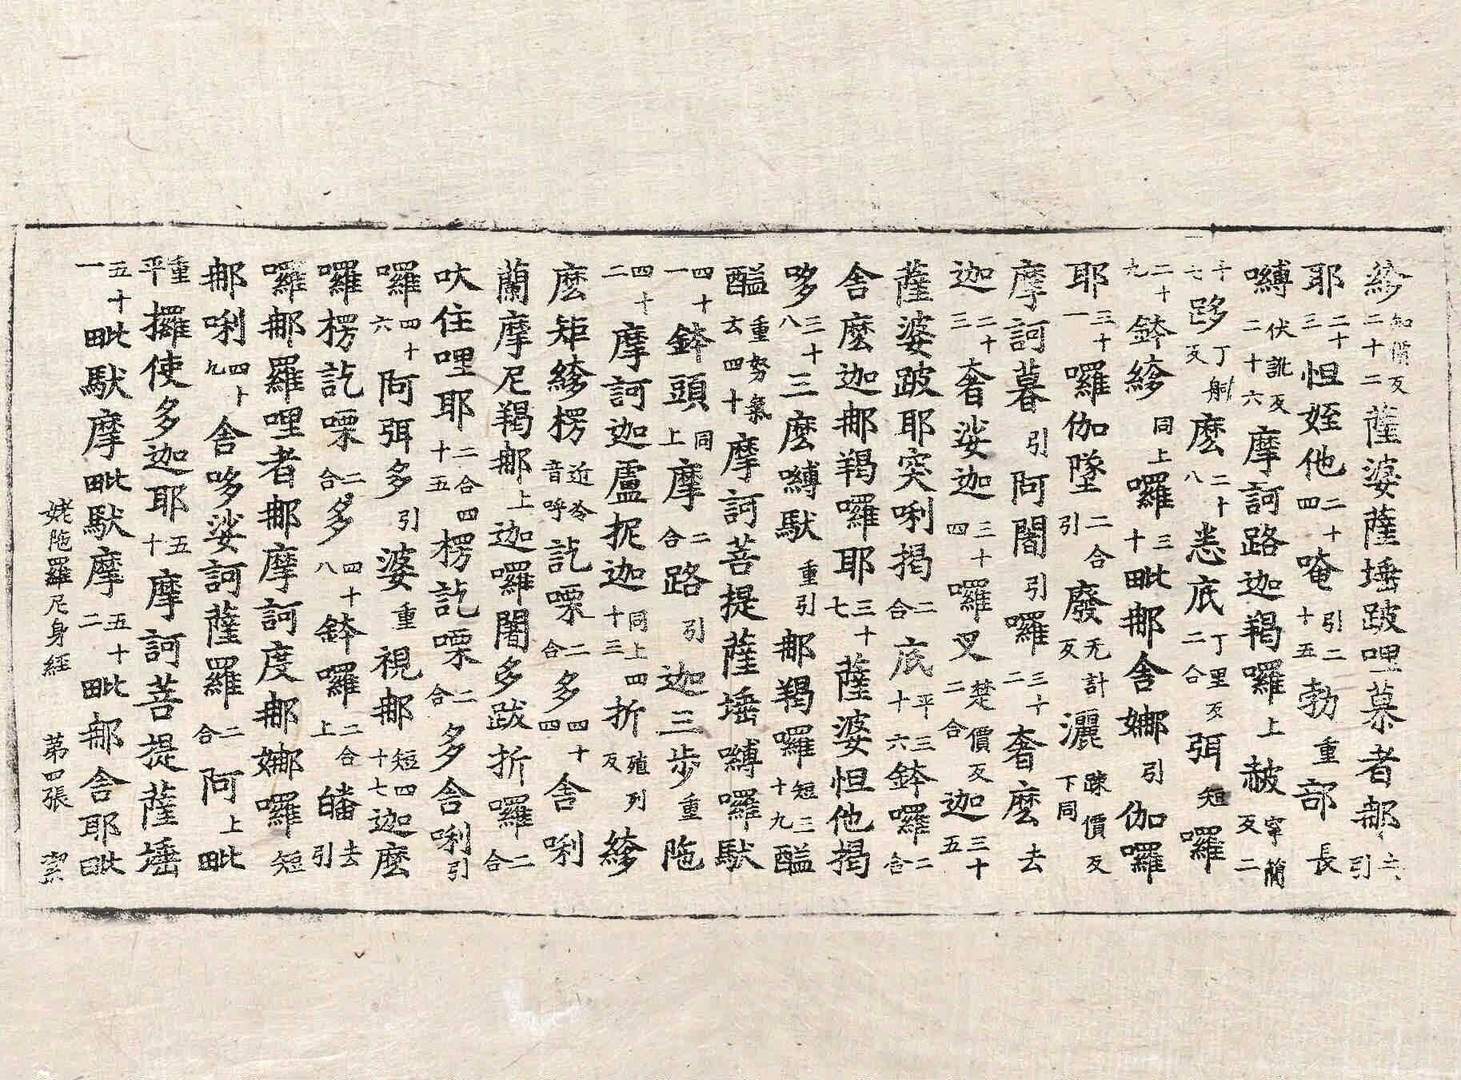 紾知價反二十二薩婆薩埵跛哩慕者𨚗上引
耶二十三怛姪他二十四唵引二十五勃重部長
嚩伏訛反二十六摩訶路迦羯囉上赦寜簡反二
十七跢丁𦨣反麽二十八恙底丁里反二合弭短囉
二十九鉢紾同上囉三十毗𨚗舍娜引伽囉
耶三十一囉伽墜二合引廢无計反灑疎價反下同
摩訶暮引阿闇引囉三十二奢麽去
迦二十三奢娑迦三十四囉叉楚價反二合迦三十五
薩婆跛耶突唎揭二合底平三十六鉢囉二合
舍麽迦𨚗羯囉耶三十七薩婆怛他揭
哆三十八三麽嚩馱重引𨚗羯囉短三十九䤈
䤈重努氣去四十摩訶菩提薩埵嚩囉馱
四十一鉢頭同上摩二合路引迦三步重陁
四十二摩訶迦盧抳迦同上四十三折殖列反紾
麽矩紾楞近泠音呼訖㗚二合多四十四舍唎
蘭摩尼羯𨚗上迦囉闍多跋折囉二合
吠住哩耶二合四十五楞訖㗚二合多舍唎引
囉四十六阿弭多引婆重視𨚗短四十七迦麽
囉楞訖㗚二合多四十八鉢囉二合上皤去引
囉𨚗羅哩者𨚗摩訶度𨚗娜囉短
𨚗唎四十九舍哆娑訶薩羅二合阿上毗
重平攞使多迦耶五十摩訶菩提薩埵
五十一毗馱摩毗馱摩五十二毗𨚗舍耶毗
姥陁羅尼身經　第四張　㓗